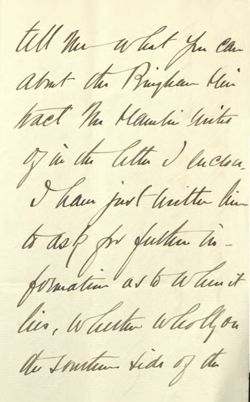 tell me what you can
about the Bingham Heir
tract Mr Hamlin writes
of in the letter I enclose.
I have just written him
to ask for further in-
formation as to where it
lies, whether wholly on
the southern side of the